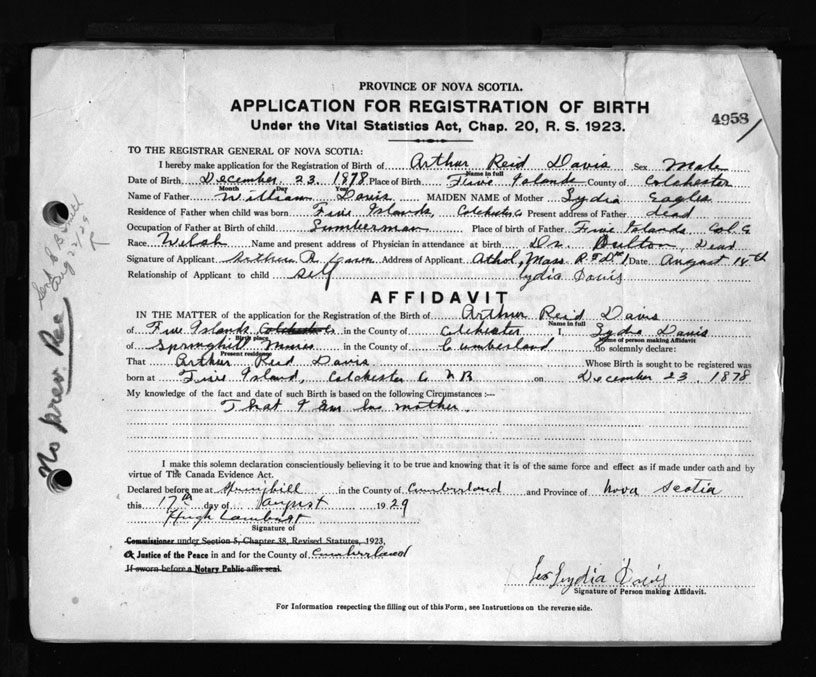 PROVINCE OF NOVA SCOTIA.
APPLICATION FOR REGISTRATION OF BIRTH
4958
Under the Vital Statistics Act, Chap. 20, R. S. 1923.
TO THE REGISTRAR GENERAL OF NOVA SCOTIA:
I hereby make application for the Registration of Birth of Arthur Reid Davis Sex Male
Name in full
Date of Birth December 23. 1878 Place of Birth Five Islands County of Colchester
Month Day Year
Name of Father William Davis MAIDEN NAME of Mother Lydia Eagles
Residence of Father when child was born Five Islands, Colchester Co Present address of Father dead
Occupation of Father at Birth of child Lumberman Place of birth of Father Five Islands Col Co
Race Welsh Name and present address of Physician in attendance at birth Dr. Dead
Signature of Applicant Arthur R. Davis Address of Applicant Athol, Mass Date August 14th
Relationship of Applicant to child self Lydia Davis
AFFIDAVIT
IN THE MATTER of the application for the Registration of the Birth of Arthur Reid Davis
Name in full
of Five Islands in the County of Colchester I, Lydia Davis
Birth place Name of person making Affidavit
of Springhill Mines in the County of Cumberland do solemnly declare:
Present residence
That Arthur Reid Davis Whose Birth is sought to be registered was
born at Five Island, Colchester Co on December 23. 1878
My knowledge of the fact and date of such Birth is based on the following Circumstances :—
That I am his mother.
I make this solemn declaration conscientiously believing it to be true and knowing that it is of the same force and effect as if made under oath and by
virtue of The Canada Evidence Act.
Declared before me at Springhill in the County of Cumberland and Province of Nova Scotia
this 17th day of August 1929
Hugh Lambert
Signature of
Commissioner under Section 5, Chapter 38, Revised Statutes, 1923,
a Justice of the Peace in and for the County of Cumberland
If sworn before a Notary Public affix seal.
Lydia Davis
Signature of Person making Affidavit.
For Information respecting the filling out of this Form, see Instructions on the reverse side.
No prev. Rec
Aug 22/29